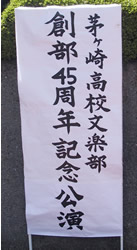 茅ヶ崎高校文楽部
創部45周年記念公演